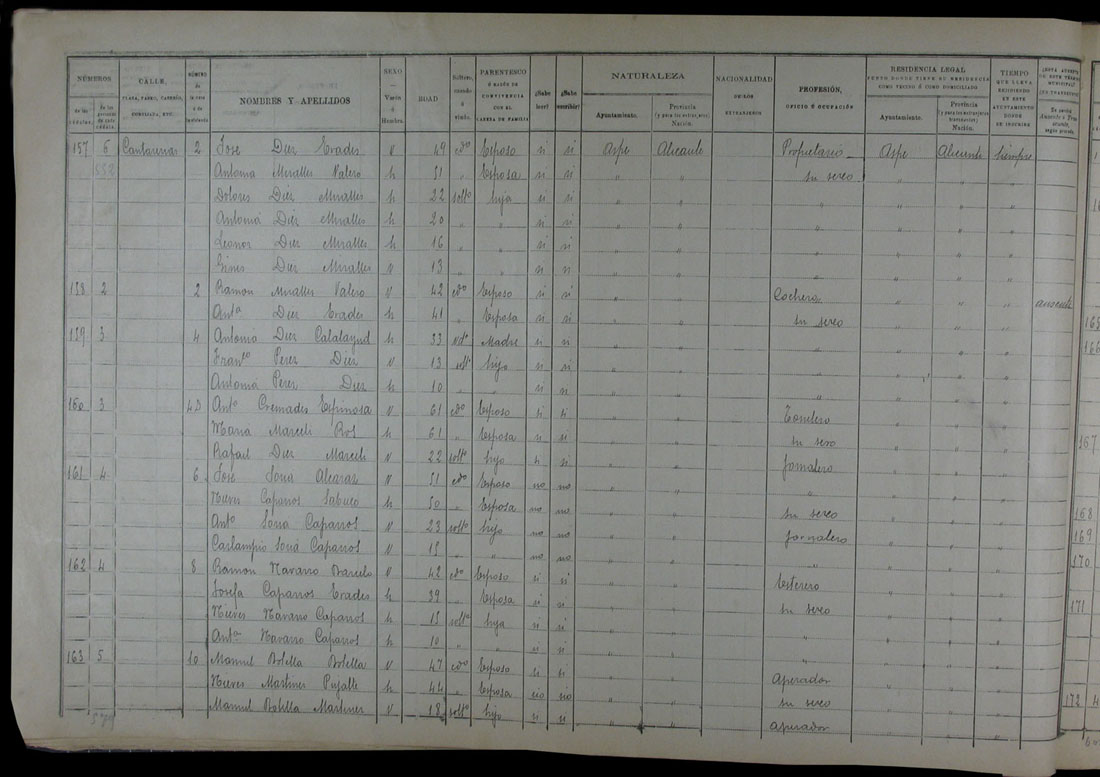 NÚMEROS
de las cédulas.
CALLE,
PLAZA, PASEO, CASERÍO, CORTIJADA, ETC.
NOMBRES Y APELLIDOS
SEXO Varón ó Hembra.
EDAD
Soltero, casado ó viudo.
PARENTESCO Ó RAZÓN DE CONVIVENCIA CON EL CABEZA DE FAMILIA
¿Sabe leer?
¿Sabe escribir?
NATURALEZA
Ayuntamiento.
Provincia (y para los extranjeros), Nación.
NACIONALIDAD
EXTRANJEROS
PROFESIÓN,
OFICIO Ó OCUPACIÓN
RESIDENCIA LEGAL
PUNTO DONDE TIENE SU RESIDENCIA COMO VECINO Ó COMO DOMICILIADO
Ayuntamiento.
Provincia (y para los extranjeros Nación.
TIEMPO QUE LLEVA RESIDIENDO EN ESTE AYUNTAMIENTO DONDE SE INSCRIBE
157 6 2 Jose Diez Erades v 49 cdo Esposo si si Aspe Alicante Propietario Aspe Alicante siempre
552 Antonia Miralles Valero h 51 " Esposa si si " " su sexo " " "
Dolores Diez Miralles h 22 solt° hija si si " " " " " "
Antonia Diez Miralles h 20 " " si si " " " " " "
Leonor Diez Miralles h 16 " " si si " " " " " "
Gines Diez Miralles v 13 " " si si " " " " " "
158 2 2 Ramon Miralles Valero v 42 cdo Esposo si si " " Cochero " " " ausente
Antª Diez Erades h 41 " Esposa si si " " su sexo " " "
159 3 4 Antonia Diez Calatayud h 33 vdª Madre si si " " " " " "
Franco Perez Diez v 13 solt° hijo si si " " " " " "
Antonia Perez Diez h 10 " " si si " " " " " "
160 3 Anto Cremades Espinosa v 61 cdo Esposo si si " " Tonelero " " "
Maria Marceli Ros h 61 " Esposa si si " " su sexo " " "
Rafael Diez Marceli v 22 solt° hijo si si " " Jornalero " " "
161 4 6 Jose Soria Alcaraz v 51 cdo Esposo no no " " " " " "
Nieves Caparros Sabuco h 50 " Esposa no no " " su sexo " " "
Anto Soria Caparros v 23 solt° hijo no no " " Jornalero " " "
Caralampio Soria Caparros v 15 " " no no " " " " " "
162 4 8 Ramon Navarro Barcelo v 42 cdo Esposo si si " " Esterero " " "
Josefa Caparros Erades h 39 " Esposa si si " " su sexo " " "
Nieves Navarro Caparros h 15 solt° hija si si " " " " " "
Antª Navarro Caparros h 10 " " si si " " " " " "
163 5 10 Manuel Botella Botella v 47 cdo Esposo si si " " Aperador " " "
Nieves Martinez Pujalte h 44 " Esposa no no " " su sexo " " "
Manuel Botella Martinez v 18 solt° hijo si si " " aperador " " "
165
166
167
168
169
170
171
172